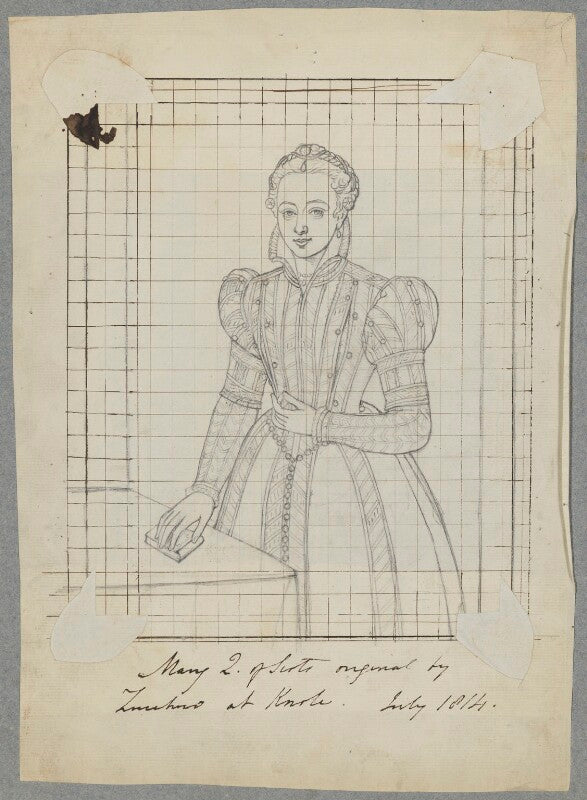 Mary Q. of Scots original by
Zucchero at Knole. July 1814.